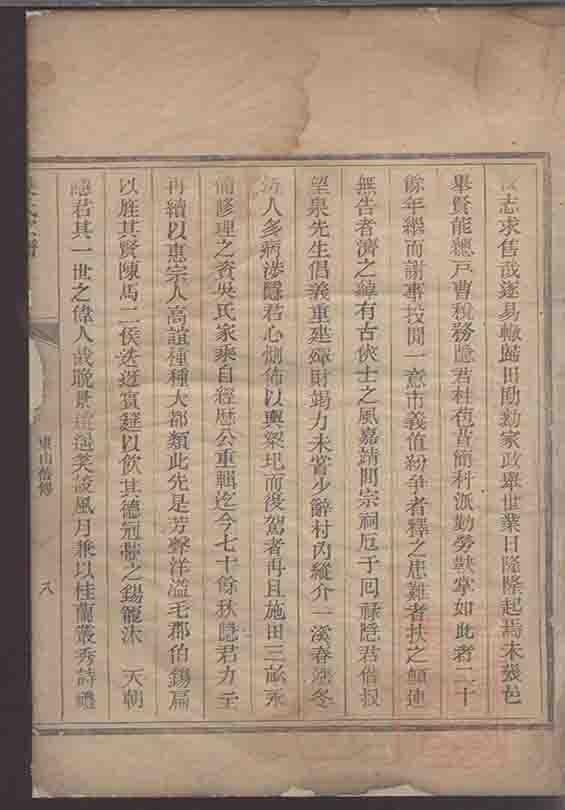 志求售哉遂易轍歸田勖勷家政舉世業日隆隆起焉未幾邑
舉賢能總戶曹稅務隱君杜苞苴簡科派勤勞執掌如此者二十
餘年繼而謝事投閒一意市義值紛爭者釋之患難者扶之顛連
無告者濟之綽有古俠士之風嘉靖間宗祠厄于囘祿隱君偕叔
望泉先生倡義重建殫財竭力未嘗少辭村內縱介一溪春冬
人多病涉隱君心惻佈以輿梁圯而復駕者再且施田三畝永
備修理之資吳氏家乘自經歷公重輯迄今七十餘秋隱君力主
再續以惠宗人高誼種種大都類此先是芳聲洋溢乇郡伯錫扁
以旌其賢陳馬二侯迭迓賓筵以飲其德冠帶之錫寵沐 天朝
隱君其一世之偉人哉晚景逍遙笑談風月兼以桂蘭叢秀詩禮
東山 傳
八